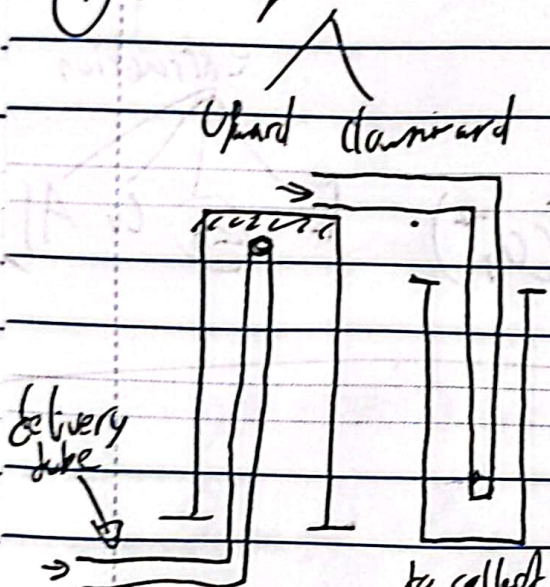 Upward downward
delivery
tube
to collect